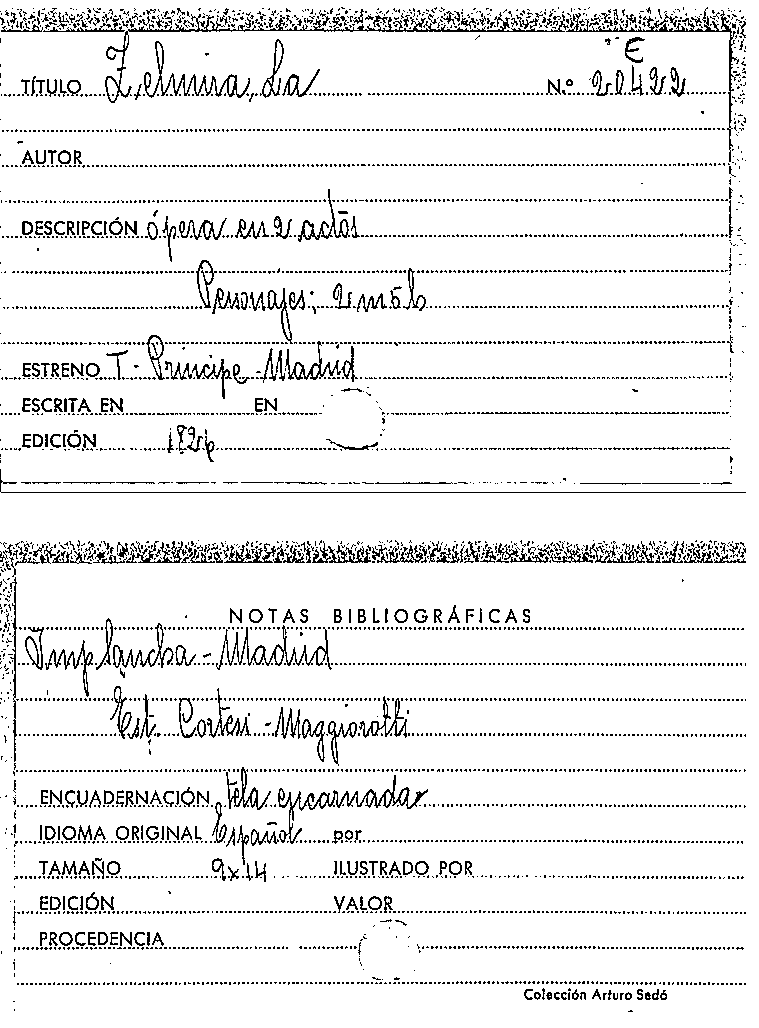 E
TÍTULO Zelmira, La N.º 20422
AUTOR
DESCRIPCIÓN ópera en 2 actos
Personajes; 2 m 5 h
ESTRENO T. Principe - Madrid
ESCRITA EN EN
EDICIÓN 1826
NOTAS BIBLIOGRÁFICAS
Imp Sancha - Madrid
Est. Cortesi - Maggiorotti
ENCUADERNACIÓN tela encarnada
IDIOMA ORIGINAL Español por
TAMAÑO 9x14 ILUSTRADO POR
EDICIÓN VALOR
PROCEDENCIA
Colección Arturo Sedó